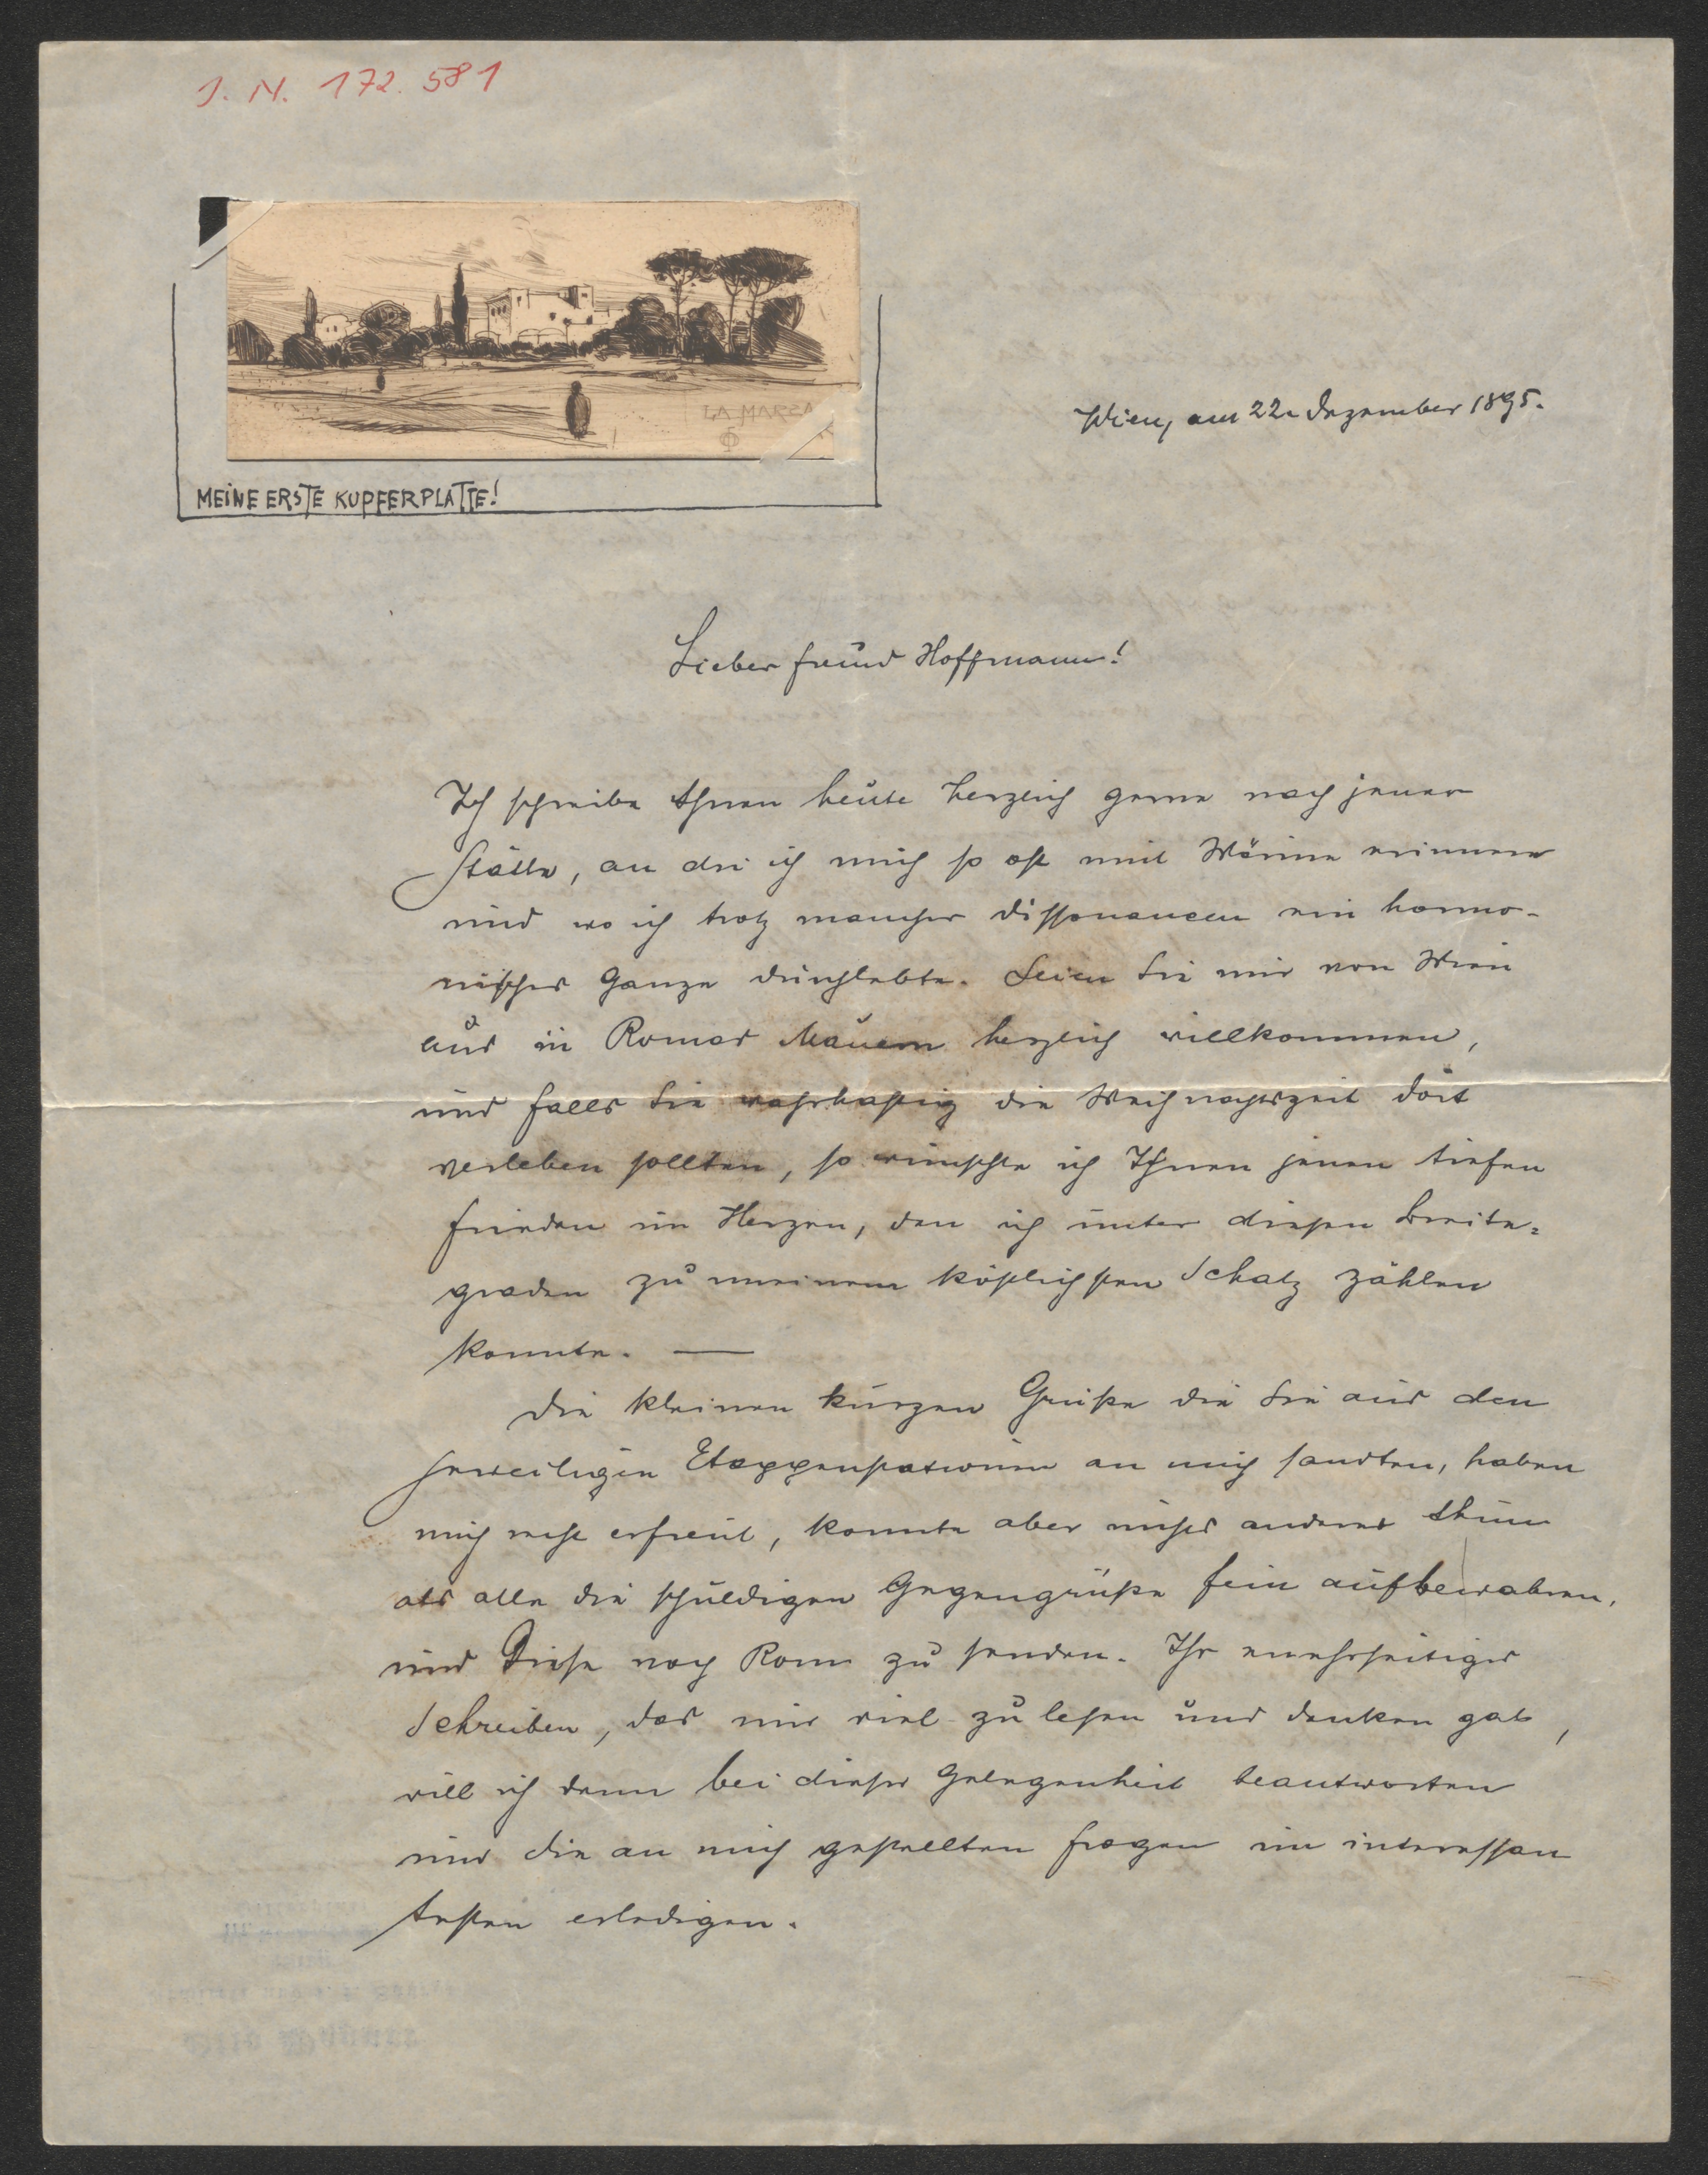 J. N. 172.581
LA MARZA
MEINE ERSTE KUPFERPLATTE!
Wien, am 22. Dezember 1895.
Lieber Freund Hoffmann!
Ich schreibe Ihnen heute herzlich gerne nach jener
Stätte, an die ich mich so oft mit Wärme erinnere
und wo ich trotz mancher Dissonancen ein harmo-
nisches Ganze durchlebte. Seien Sie mir von Wien
aus in Romas Mauern herzlich willkommen,
und falls Sie wahrhaftig die Weihnachtszeit dort
verleben sollten, so wünschte ich Ihnen jenen tiefen
Frieden im Herzen, den ich unter diesen Breite-
graden zu meinem köstlichsten Schatz zählen
konnte. —
Die kleinen kurzen Grüße die Sie aus den
jeweiligen Etappenstationen an mich sandten, haben
mich recht erfreut, konnte aber nichts anderes thun
als alle die schuldigen Gegengrüße fein aufbewahren,
und Diese nach Rom zu senden. Ihr mehrseitiges
Schreiben, das mir viel zu lesen und denken gab,
will ich denn bei dieser Gelegenheit beantworten
und die an mich gestellten Fragen im interessan
testen erledigen.